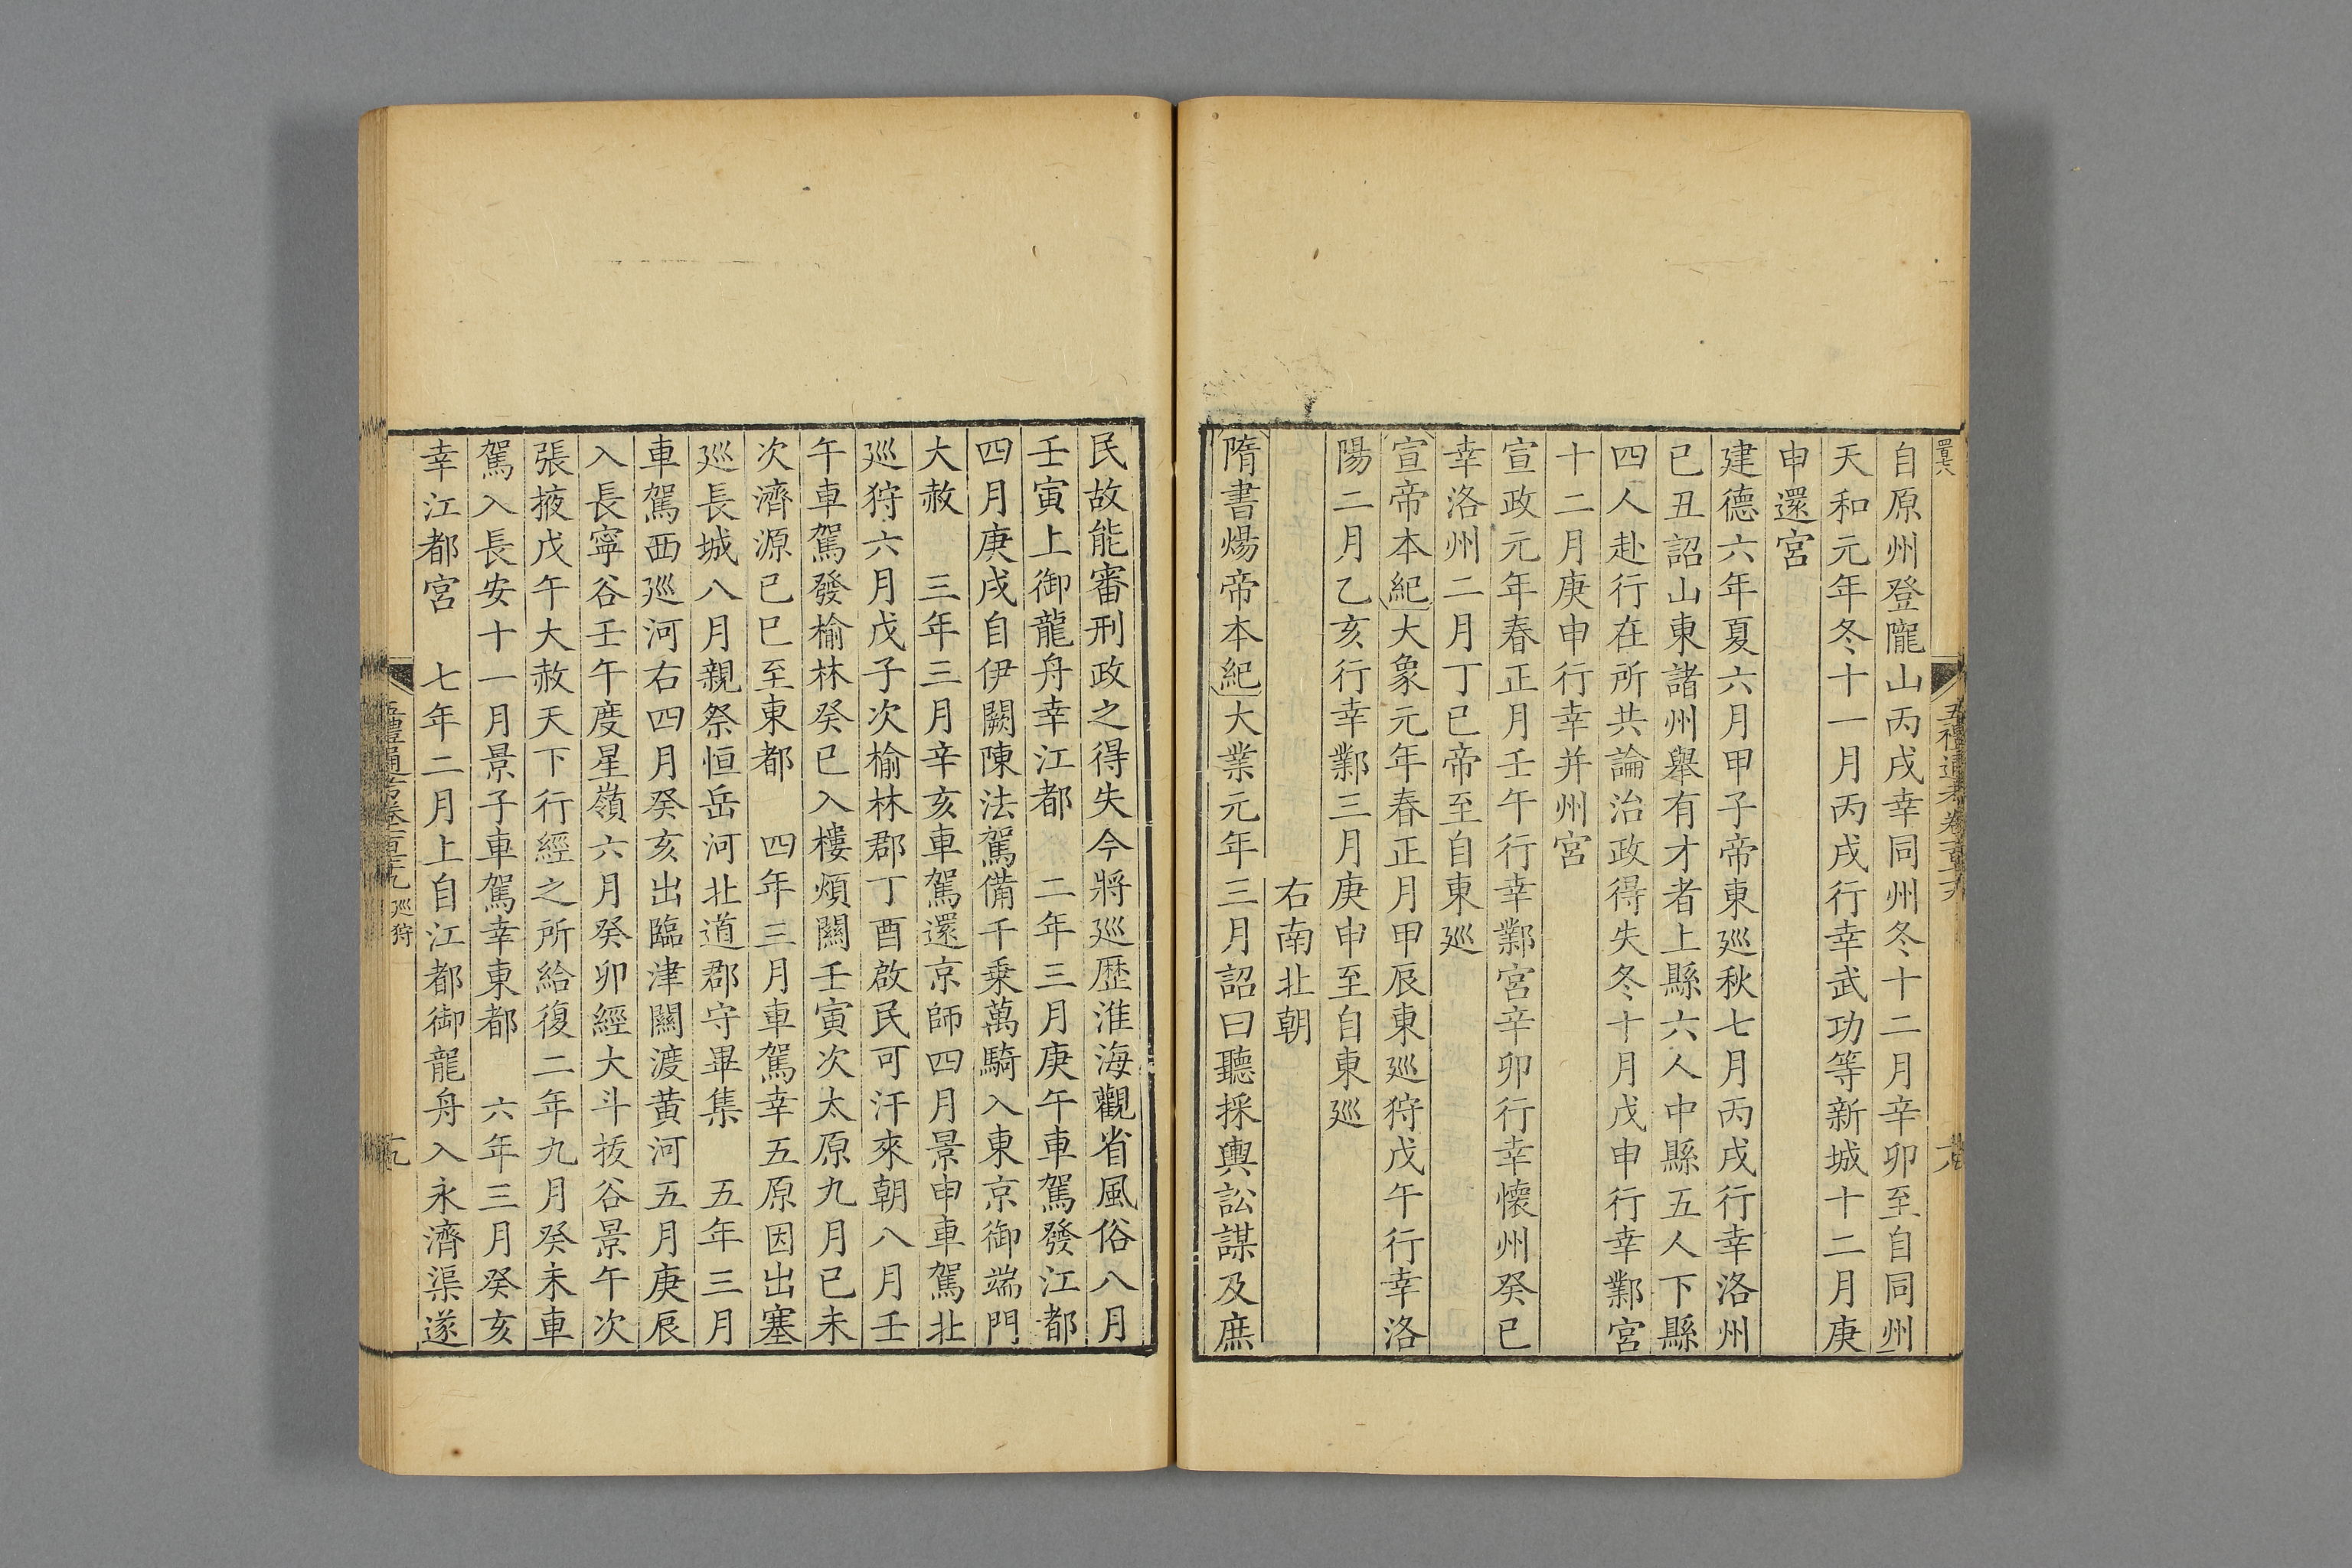 自原州登隴山丙戌幸同州冬十二月辛卯至自同州
天和元年冬十一月丙戌行幸武功等新城十二月庚
申還宮
建德六年夏六月甲子帝東廵秋七月丙戌行幸洛州
已丑詔山東諸州舉有才者上縣六人中縣五人下縣
四人赴行在所共論治政得失冬十月戊申行幸鄴宮
十二月庚申行幸并州宮
宣政元年春正月壬午行幸鄴宮辛卯行幸懷州癸巳
幸洛州二月丁巳帝至自東廵
宣帝本紀大象元年春正月甲辰東廵狩戊午行幸洛
陽二月乙亥行幸鄴三月庚申至自東廵
右南北朝
隋書煬帝本紀大業元年三月詔曰聽採輿訟謀及庶
民故能審刑政之得失今將廵歴淮海觀省風俗八月
壬寅上御龍舟幸江都　二年三月庚午車駕發江都
四月庚戌自伊闕陳法駕備千乗萬騎入東京御端門
大赦　三年三月辛亥車駕還京師四月景申車駕北
廵狩六月戊子次榆林郡丁酉啟民可汗來朝八月壬
午車駕發榆林癸巳入樓煩關壬寅次太原九月已未
次濟源已巳至東都　四年三月車駕幸五原因出塞
廵長城八月親祭恒岳河北道郡守畢集　五年三月
車駕西廵河右四月癸亥出臨津關渡黄河五月庚辰
入長寧谷壬午度星嶺六月癸卯經大斗拔谷景午次
張掖戊午大赦天下行經之所給復二年九月癸未車
駕入長安十一月景子車駕幸東都　六年三月癸亥
幸江都宮　七年二月上自江都御龍舟入永濟渠遂
五禮通考卷一百七十九　廵狩　十九